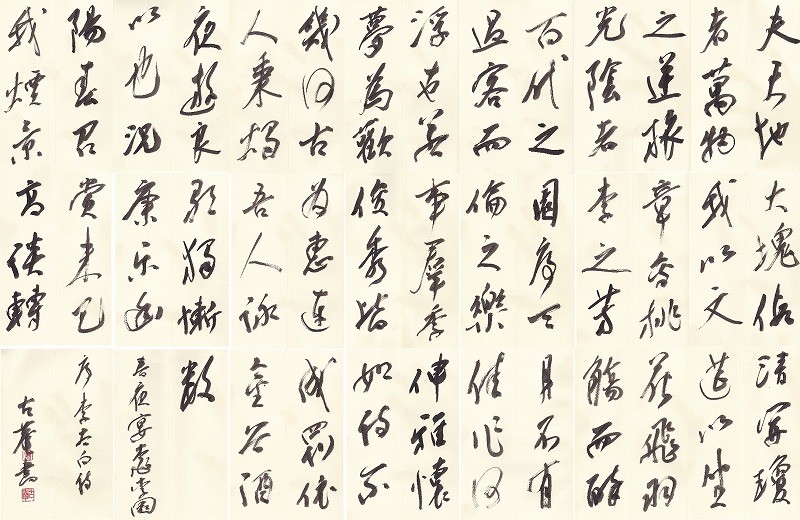 夫天地
者萬物
之逆旅
光陰者
百代之
過客而
浮世若
夢為歡
幾何古
人秉燭
夜遊良
以也況
陽春召
我煙景
大塊假
我以文
章會桃
李之芳
園序天
倫之樂
事羣季
俊秀皆
為惠連
吾人詠
歌獨慚
康樂幽
賞未已
高談轉
清開瓊
筵以坐
花飛羽
觴而醉
月不有
佳作何
伸雅懷
如詩不
成罰依
金谷酒
數
春夜宴桃李園
序李太白詩
古書